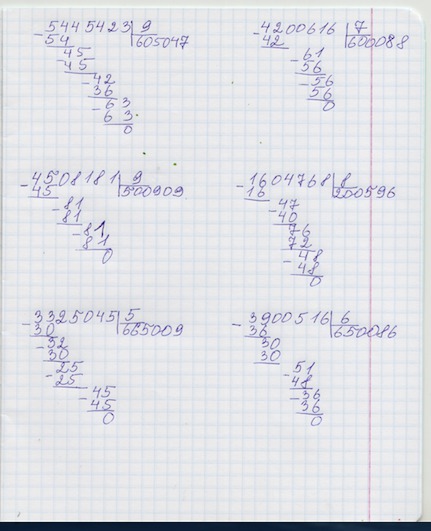 - 5445423 | 9
54 | 605047
- 45
45
- 42
36
- 63
63
0
- 4200616 | 7
42 | 600088
- 61
56
- 56
56
0
- 4508181 | 9
45 | 500909
- 81
81
- 81
81
0
- 1604768 | 8
16 | 200596
- 47
40
76
72
- 48
48
0
- 3325045 | 5
30 | 665009
- 32
30
25
- 25
- 45
45
0
- 3900516 | 6
36 | 650086
30
30
- 51
48
- 36
36
0